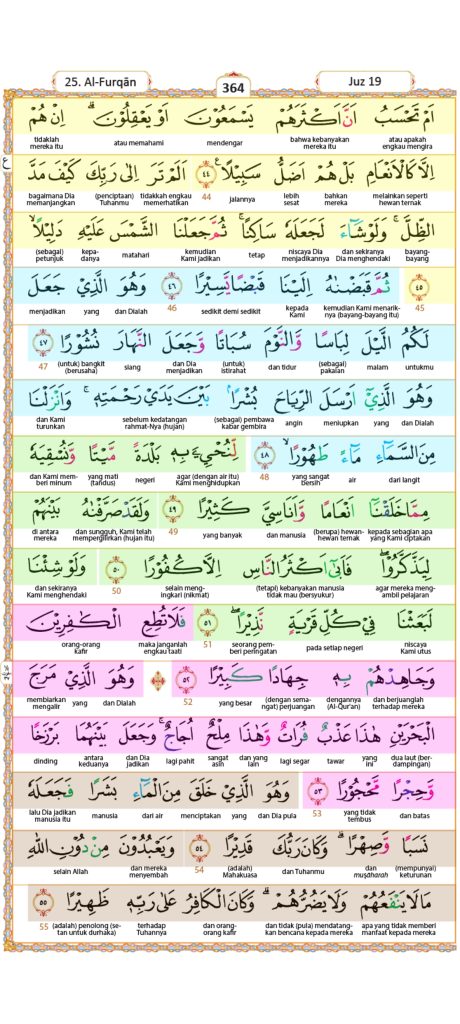 25. Al-Furqān
364
Juz 19
اَمْ تَحْسَبُ اَنَّ اَكْثَرَهُمْ يَسْمَعُوْنَ اَوْ يَعْقِلُوْنَۗ اِنْ هُمْ
atau apakah engkau mengira bahwa kebanyakan mereka itu mendengar atau memahami tidaklah mereka itu
اِلَّا كَالْاَنْعَامِ بَلْ هُمْ اَضَلُّ سَبِيْلًا ࣖ ٤٤ اَلَمْ تَرَ اِلٰى رَبِّكَ كَيْفَ مَدَّ
melainkan seperti hewan ternak bahkan mereka lebih sesat jalannya 44 tidakkah engkau memerhatikan (penciptaan) Tuhanmu bagaimana Dia memanjangkan
الظِّلَّۚ وَلَوْ شَاۤءَ لَجَعَلَهٗ سَاكِنًاۚ ثُمَّ جَعَلْنَا الشَّمْسَ عَلَيْهِ دَلِيْلًا ۙ
bayang-bayang dan sekiranya Dia menghendaki niscaya Dia menjadikannya tetap kemudian Kami jadikan matahari kepa-danya (sebagai) petunjuk
٤٥ ثُمَّ قَبَضْنٰهُ اِلَيْنَا قَبْضًا يَّسِيْرًا ٤٦ وَهُوَ الَّذِيْ جَعَلَ
45 kemudian Kami menarik-nya (bayang-bayang itu) kepada Kami sedikit demi sedikit 46 dan Dialah yang menjadikan
لَكُمُ الَّيْلَ لِبَاسًا وَّالنَّوْمَ سُبَاتًا وَّجَعَلَ النَّهَارَ نُشُوْرًا ٤٧
untukmu malam (sebagai) pakaian dan tidur (untuk) istirahat dan Dia menjadikan siang (untuk) bangkit (berusaha) 47
وَهُوَ الَّذِيْٓ اَرْسَلَ الرِّيٰحَ بُشْرًاۢ بَيْنَ يَدَيْ رَحْمَتِهٖۚ وَاَنْزَلْنَا
dan Dialah yang meniupkan angin (sebagai) pembawa kabar gembira sebelum kedatangan rahmat-Nya (hujan) dan Kami turunkan
مِنَ السَّمَاۤءِ مَاۤءً طَهُوْرًا ۙ ٤٨ لِّنُحْيِ َۧ بِهٖ بَلْدَةً مَّيْتًا وَّنُسْقِيَهٗ
dari langit air yang sangat bersih 48 agar (dengan air itu) Kami menghidupkan negeri yang mati (tandus) dan Kami mem-beri minum
مِمَّا خَلَقْنَآ اَنْعَامًا وَّاَنَاسِيَّ كَثِيْرًا ٤٩ وَلَقَدْ صَرَّفْنٰهُ بَيْنَهُمْ
kepada sebagian apa yang Kami ciptakan (berupa) hewan-hewan ternak dan manusia yang banyak 49 dan sungguh, Kami telah mempergilirkan (hujan itu) di antara mereka
لِيَذَّكَّرُوْاۖ فَاَبٰىٓ اَكْثَرُ النَّاسِ اِلَّا كُفُوْرًا ٥٠ وَلَوْ شِئْنَا
agar mereka meng-ambil pelajaran (tetapi) kebanyakan manusia tidak mau (bersyukur) selain meng-ingkari (nikmat) 50 dan sekiranya Kami menghendaki
لَبَعَثْنَا فِيْ كُلِّ قَرْيَةٍ نَّذِيْرًا ۖ ٥١ فَلَا تُطِعِ الْكٰفِرِيْنَ
niscaya Kami utus pada setiap negeri seorang pem-beri peringatan 51 maka janganlah engkau taati orang-orang kafir
وَجَاهِدْهُمْ بِهٖ جِهَادًا كَبِيْرًا ٥٢ وَهُوَ الَّذِيْ مَرَجَ
dan berjuanglah terhadap mereka dengannya (Al-Qur'an) (dengan sema-ngat) perjuangan yang besar 52 dan Dialah yang membiarkan mengalir
الْبَحْرَيْنِ هٰذَا عَذْبٌ فُرَاتٌ وَّهٰذَا مِلْحٌ اُجَاجٌۚ وَجَعَلَ بَيْنَهُمَا بَرْزَخًا
dua laut (ber-dampingan) yang ini tawar lagi segar dan yang lain sangat asin lagi pahit dan Dia jadikan antara keduanya dinding
وَّحِجْرًا مَّحْجُوْرًا ٥٣ وَهُوَ الَّذِيْ خَلَقَ مِنَ الْمَاۤءِ بَشَرًا فَجَعَلَهٗ
dan batas yang tidak tembus 53 dan Dia pula yang menciptakan dari air manusia lalu Dia jadikan manusia itu
نَسَبًا وَّصِهْرًاۗ وَكَانَ رَبُّكَ قَدِيْرًا ٥٤ وَيَعْبُدُوْنَ مِنْ دُوْنِ اللّٰهِ
(mempunyai) keturunan dan muṣāharah dan Tuhanmu (adalah) Mahakuasa 54 dan mereka menyembah selain Allah
مَا لَا يَنْفَعُهُمْ وَلَا يَضُرُّهُمْۗ وَكَانَ الْكَافِرُ عَلٰى رَبِّهٖ ظَهِيْرًا ٥٥
apa yang tidak memberi manfaat kepada mereka dan tidak (pula) mendatang-kan bencana kepada mereka dan orang-orang kafir terhadap Tuhannya (adalah) penolong (se-tan untuk durhaka) 55